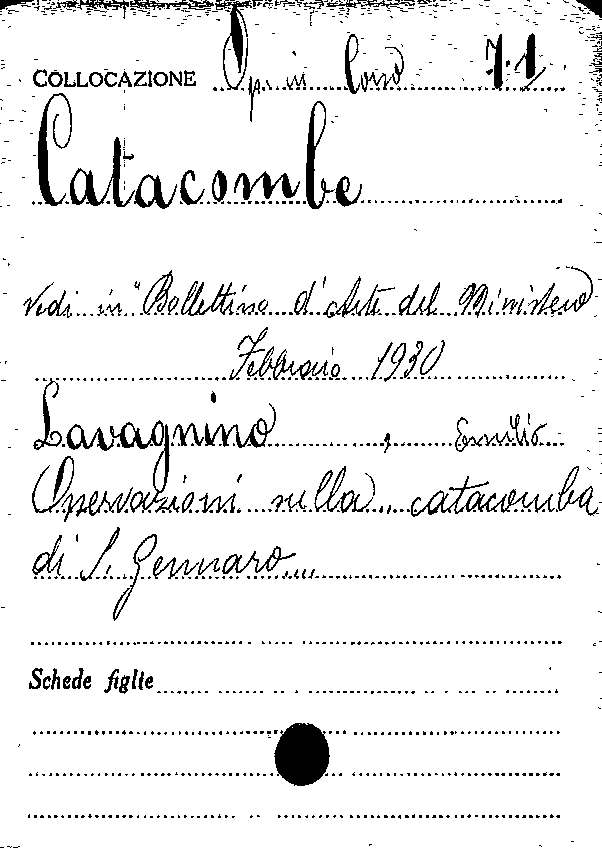 COLLOCAZIONE Op. in Cons 7.1
Catacombe
Vedi in "Bollettino d'Arte del Ministero
Febbraio 1930
Lavagnino, Emilio
Osservazioni sulla catacomba
di S. Gennaro
Schede figlie